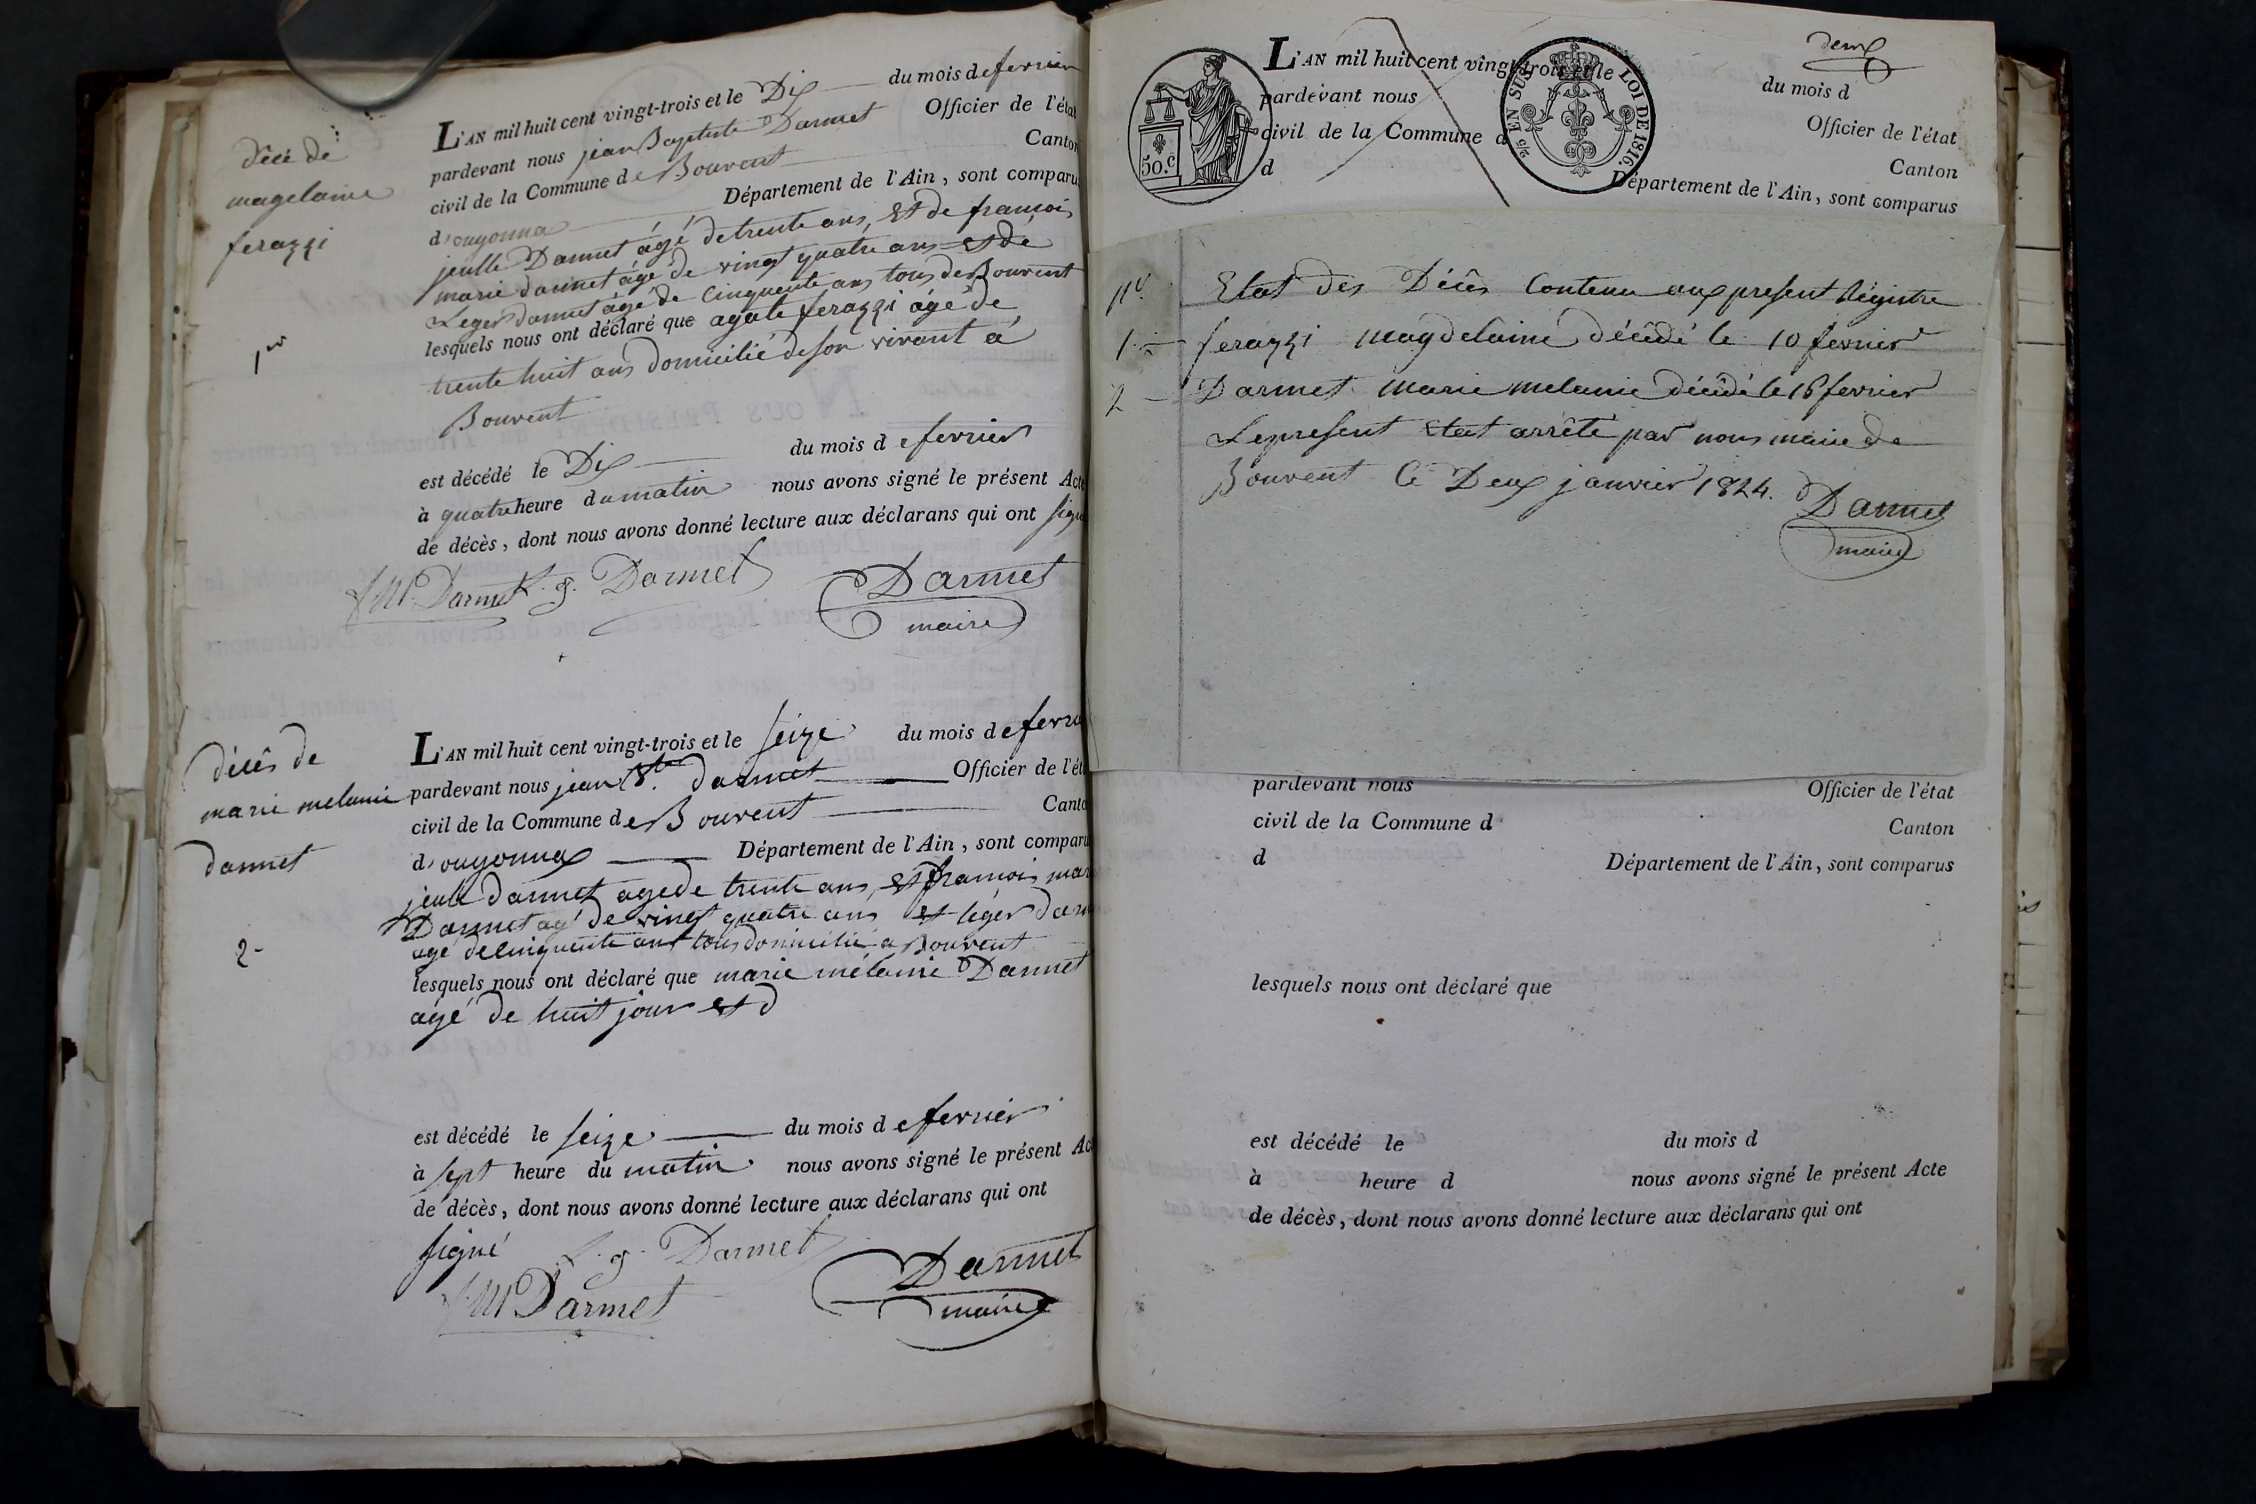 décè de
magelaine
ferazzi
1er
L'AN mil huit cent vingt-trois et le Dix du mois de fevrier
pardevant nous jean Baptiste Darmet Officier de l'état
civil de la Commune de Bouvent Canton
d'ouyonna Département de l'Ain, sont comparus
Darmet âgé de trente ans, Et de francois
marie darmet âgé de vingt quatre ans et de
Leger darmet âgé de cinquente ans tous de Bouvent
lesquels nous ont déclaré que agate ferazzi âgé de
trente huit ans domicilié de son vivant à
Bouvent
est décédé le Dix du mois de fevrier
à quatre heure du matin nous avons signé le présent Acte
de décès, dont nous avons donné lecture aux déclarans qui ont signé
f M Darmet L. g. Darmet Darmet
maire
décès de
marie melanie
darmet
2
L'AN mil huit cent vingt-trois et le seize du mois de fevri
pardevant nous jean Bte. darmet Officier de l'ét
civil de la Commune de Bouvent Canto
d'ouyonnax Département de l'Ain, sont comparu
darmet age de trente ans, et francois mar
Darmet agé de vingt quatre ans et léger darm
agé de cinquente ans tous domicilié a Bouvent
lesquels nous ont déclaré que marie mélanie Darmet
âgé de huit jour et d
est décédé le seize du mois de fevrier
à sept heure du matin nous avons signé le présent Act
de décès, dont nous avons donné lecture aux déclarans qui ont
signé L. g. Darmet Darmet
f M Darmet maire
deux
L'AN mil huit cent vingt-trois et le du mois d
pardevant nous Officier de l'état
civil de la Commune d Canton
d Département de l'Ain, sont comparus
50.c
EN SUS LOI DE 1816.
Etat des Décès Contenu aux present Régistre
1 ferazzi magdelaine décédé le 10 fevrier
2 Darmet marie melanie décédé le 16 fevrier
Le present etat arrêté par nous maire de
Bouvent Ce Deux janvier 1824. Darmet
maire
pardevant nous Officier de l'état
civil de la Commune d Canton
d Département de l'Ain, sont comparus
lesquels nous ont déclaré que
est décédé le du mois d
à heure d nous avons signé le présent Acte
de décès, dont nous avons donné lecture aux déclarans qui ont